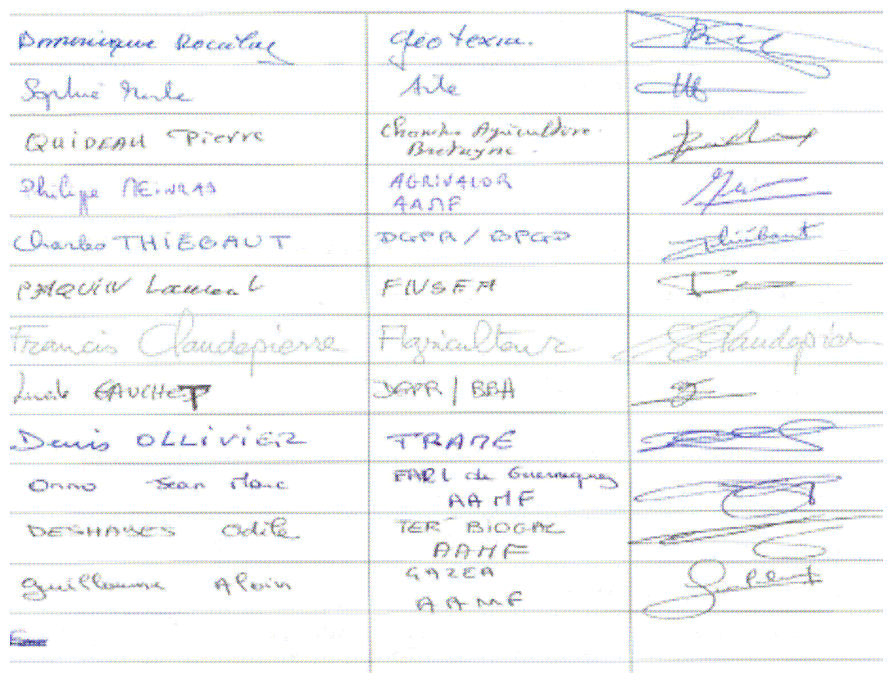 Dominique Geotexia.
Sophie Aile
QUIDEAU Pierre Chambre Agriculture Bretagne.
Philippe MEINRAD AGRIVALOR AAMF
Charles THIÉBAUT DGPR / BPGD Thiébaut
PAQUIN Laurent FNSEA
Francis Claudepierre Agriculteur Claudepierre
GAUCHET DGPR / BBA
Denis OLLIVIER TRAME
Onno Jean Marc EARL de AAMF
DESHAYES Odile TER' BIOGAZ AAMF
Guillaume Alain GAZEA AAMF